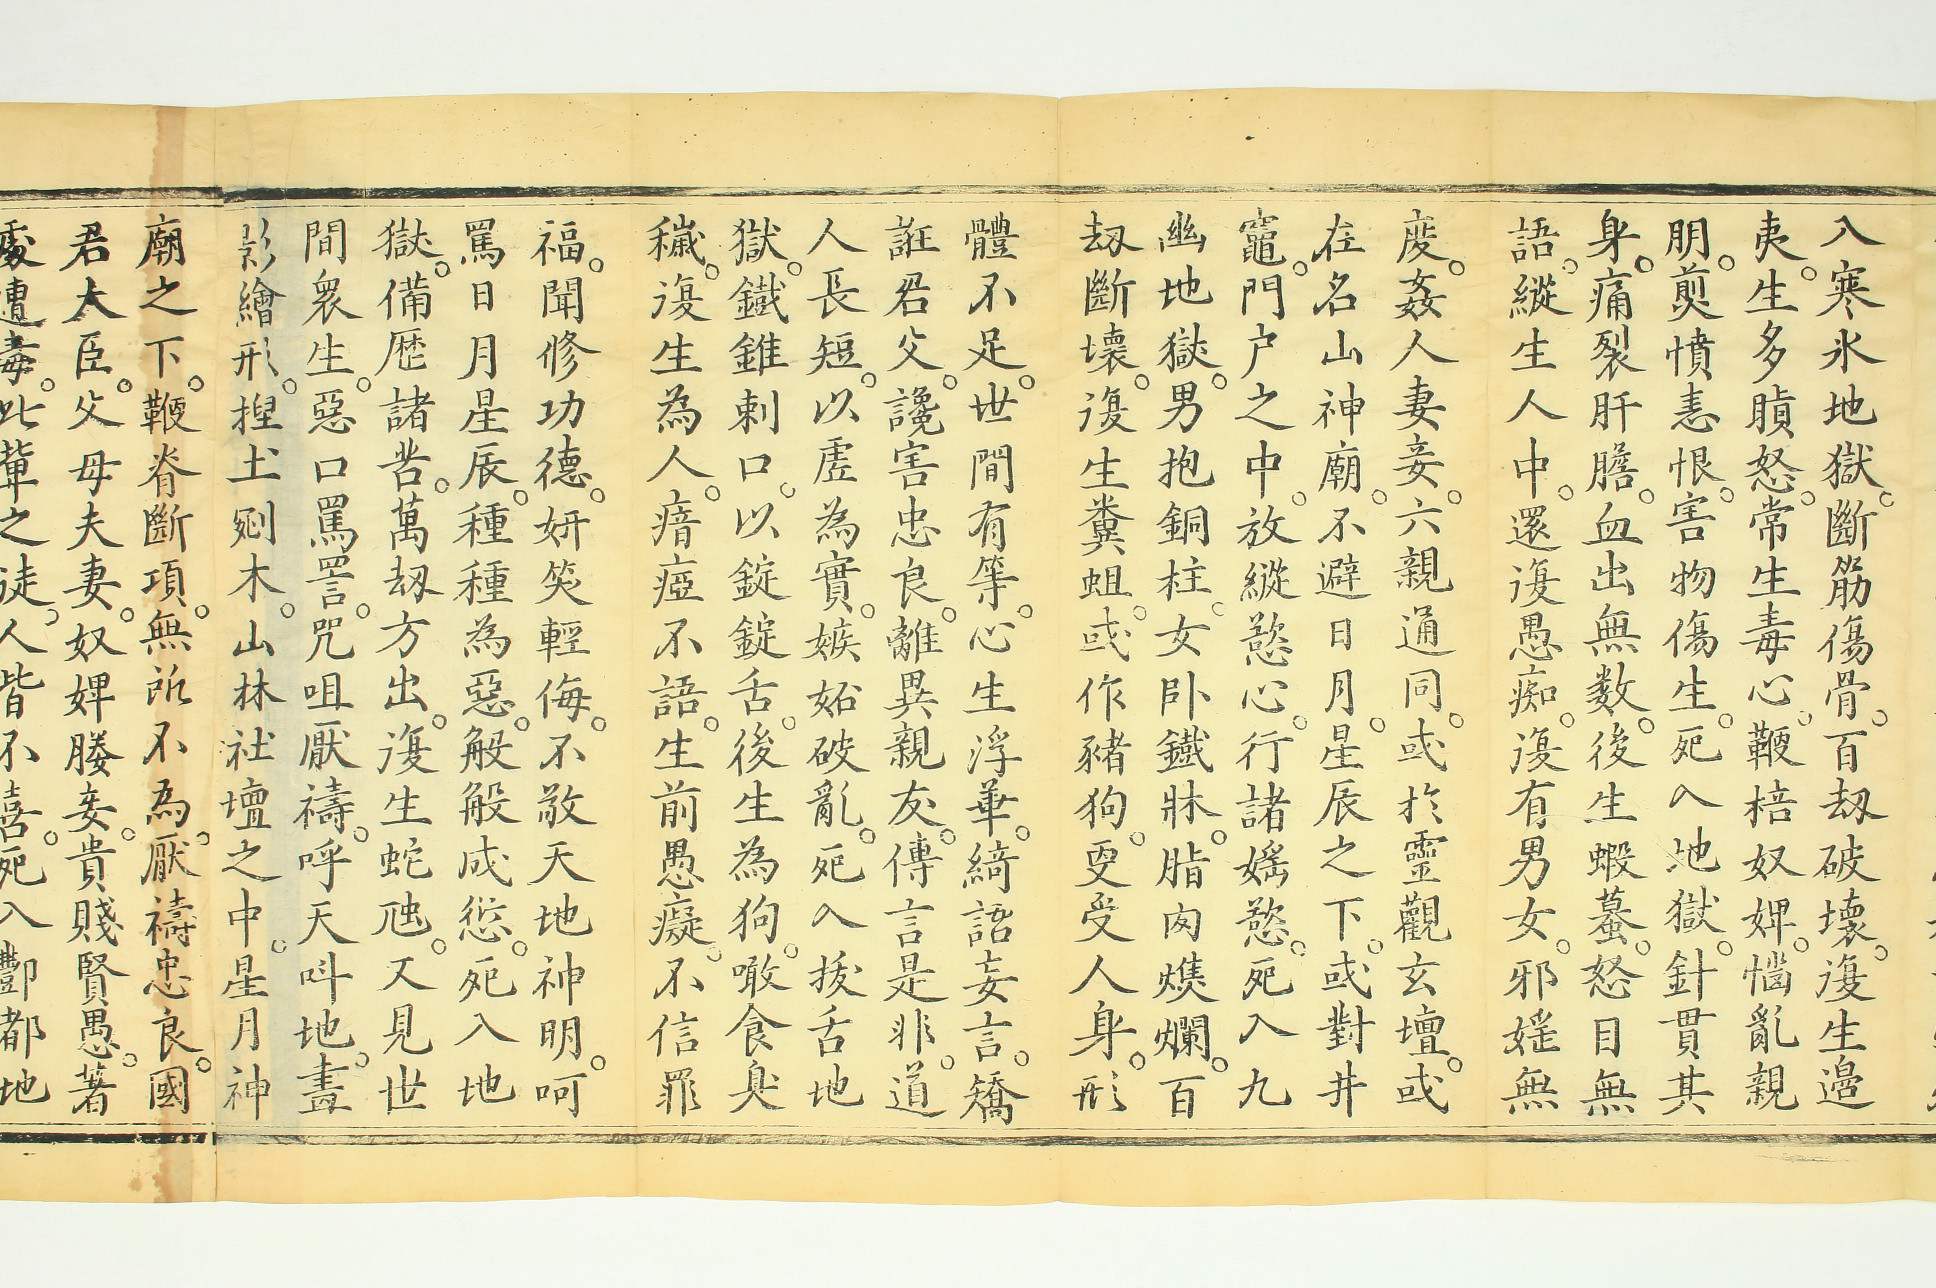 入寒氷地獄。斷筋傷骨。百刼破壞。復生邉
夷。生多瞋怒。常生毒心。鞭棓奴婢。惱亂親
朋。煎憤恚恨。害物傷生。死入地獄。針貫其
身。痛裂肝膽。血出無数。後生蝦蟇。怒目無
語。縱生人中。還復愚痴。復有男女。邪婬無
度。姦人妻妾。六親通同。或於靈觀玄壇。或
在名山神廟。不避日月。星辰之下。或對井
竈。門户之中。放縱慾心。行諸婬慾。死入九
幽地獄。男抱銅柱。女卧鐵牀。脂肉燋爛。百
刼斷壞。復生糞蛆。或作豬狗。更受人身。形
體不足。世間有等。心生浮華。綺語妄言。矯
誑君父。讒害忠良。離異親友。傳言是非。道
人長短。以虚為實。嫉妬破亂。死入拔舌地
獄。鐵錐刺口。以錠錠舌。後生為狗。噉食臭
穢。復生為人。瘖瘂不語。生前愚癡。不信罪
福。聞修功德。妍笑輕侮。不敬天地神明。呵
罵日月星辰。種種為惡。般般成愆。死入地
獄。備歷諸苦。萬刼方出。復生蛇虺。又見世
間衆生。惡口罵詈。咒咀厭禱。呼天呌地。畫
影繪形。揑土剜木。山林社壇之中。星月神
廟之下。鞭脊斷項。無所不為。厭禱忠良。國
君大臣。父母夫妻。奴婢媵妾。貴賤賢愚。著
處遭毒。此輩之徒。人皆不喜。死入酆都地